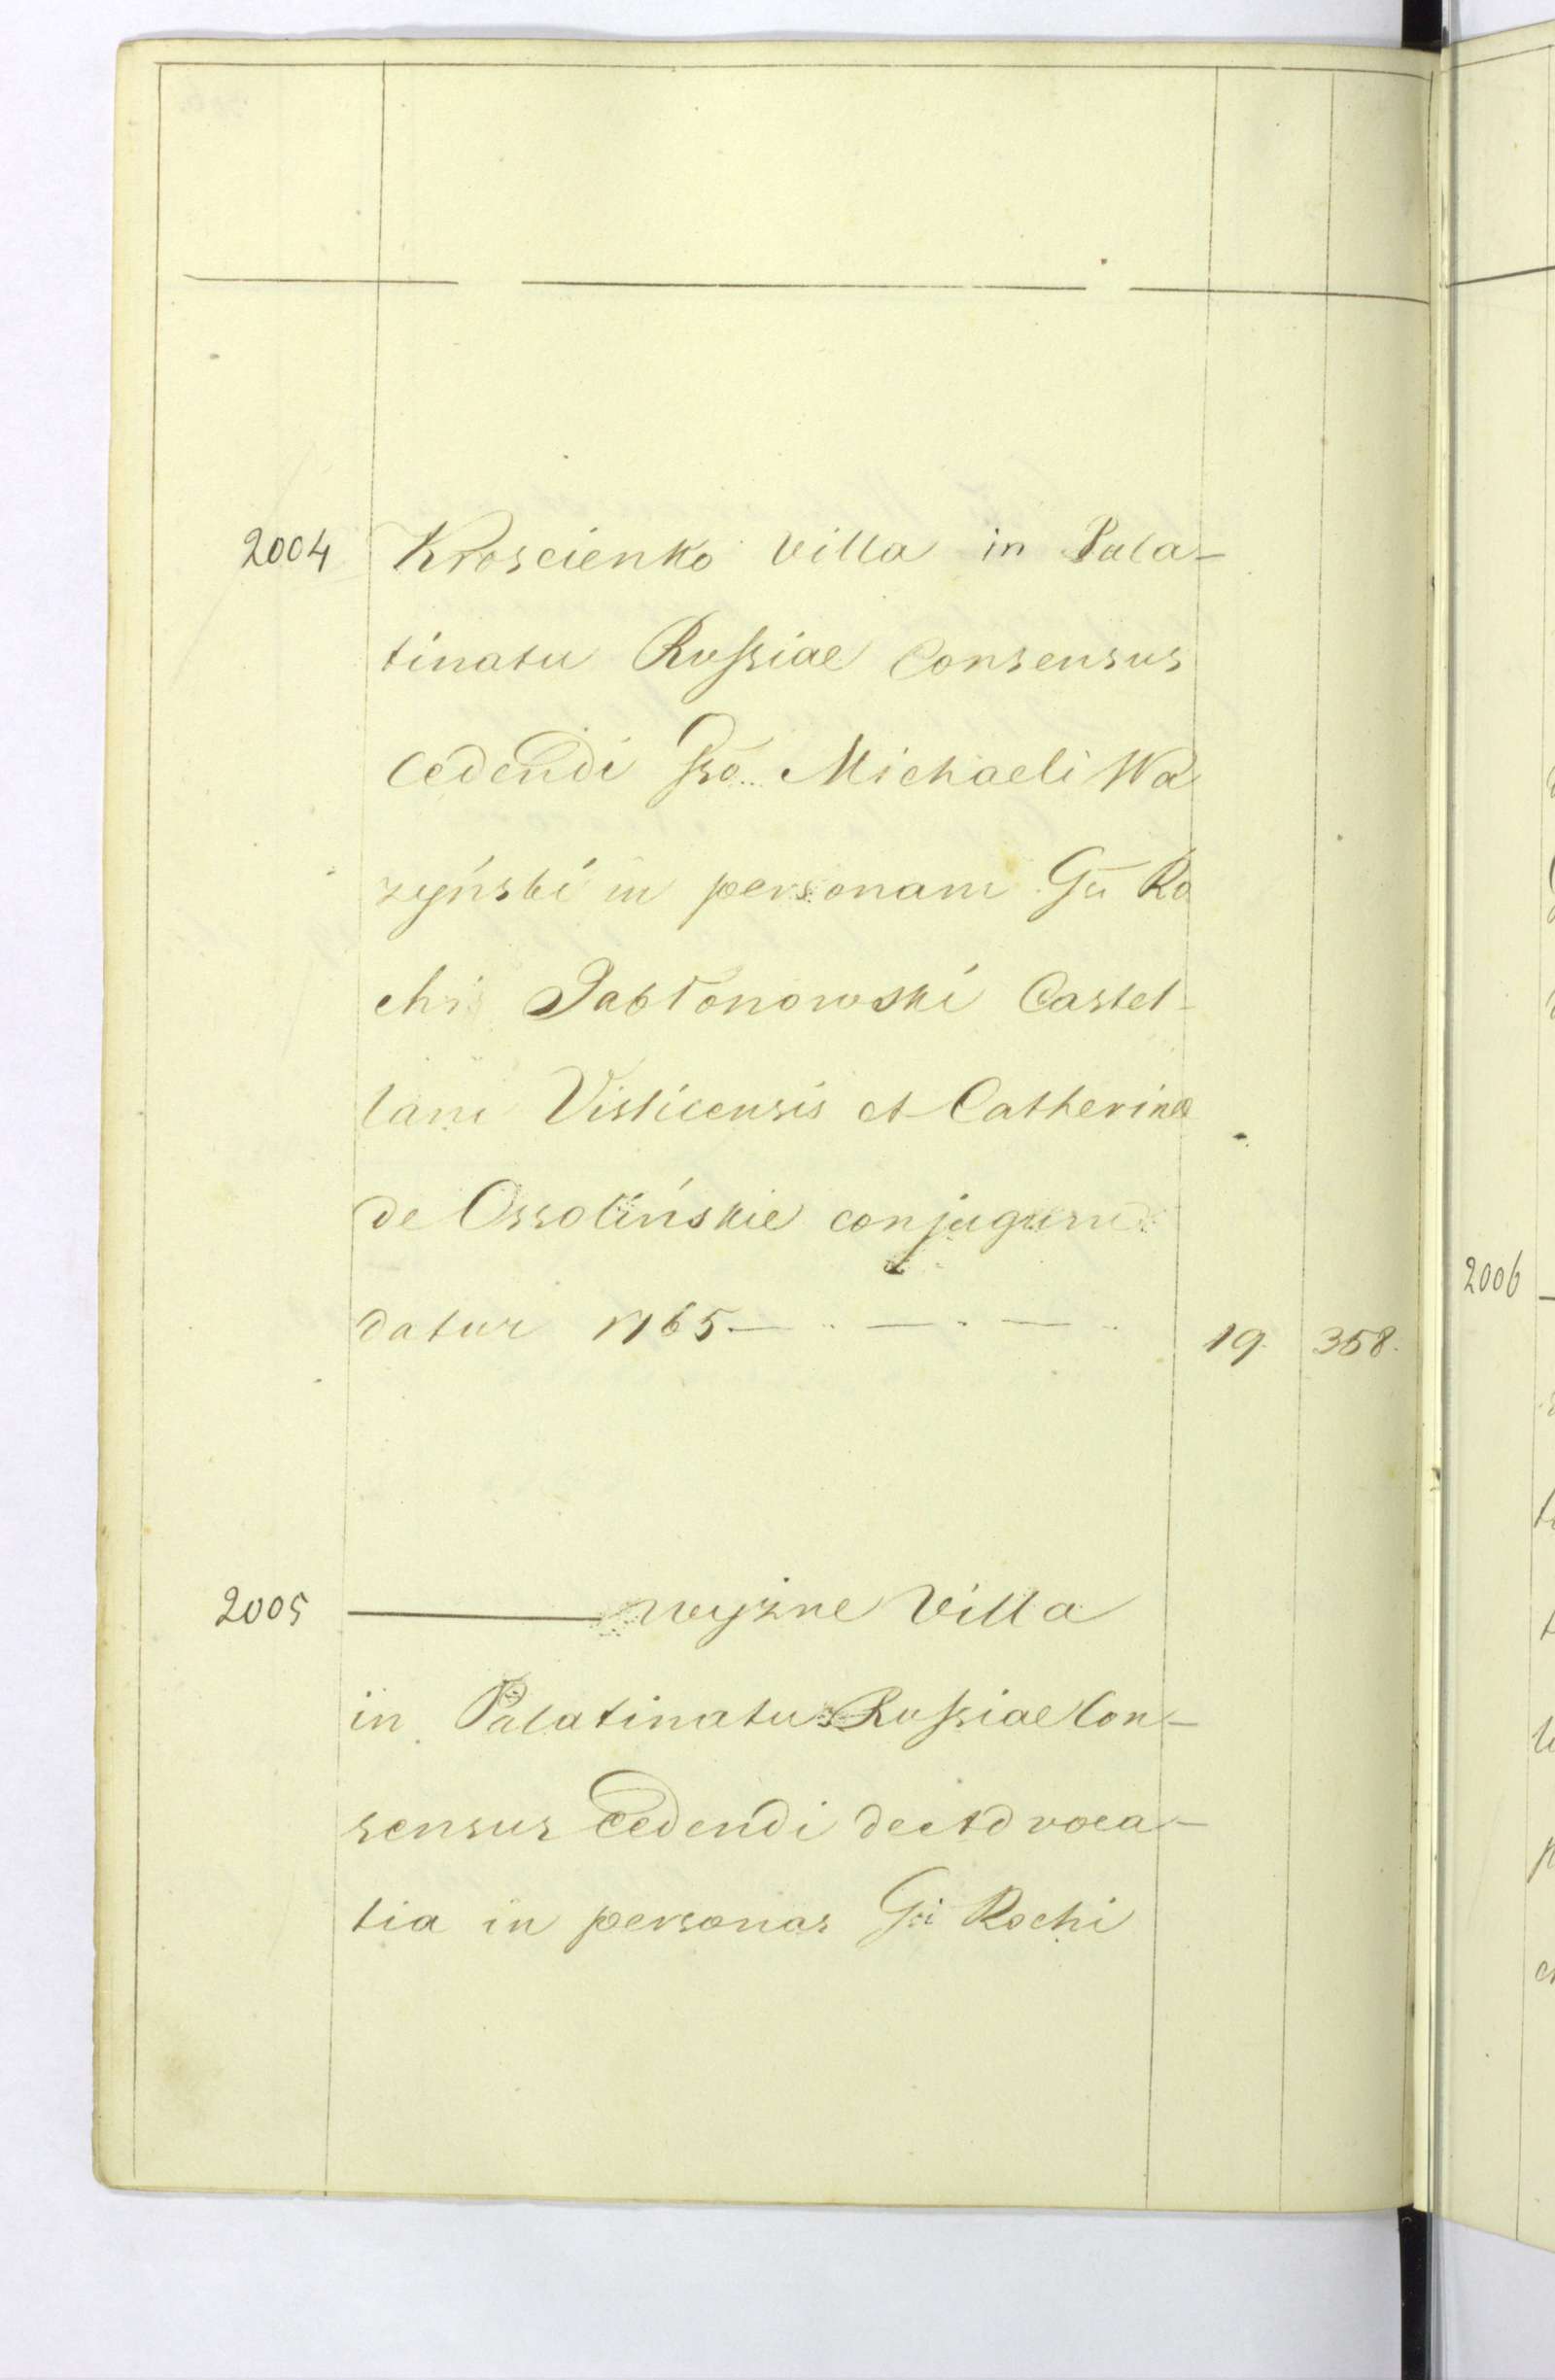 2004 Kroscienko villa in Pala-
tinatu Russiae Consensus
cedendi Gso Michaeli Wa
zyński in personam Gsi Ro
chi Jabłonowski Castel-
lani Visticensis et Catherinae
de Ossolińskie conjugum
datur 1765 19. 358.
2005 wyżne Villa
in Palatinatu Russiae Con-
sensus cedendi de Advoca-
tia in personas Gsi Rochi
2006